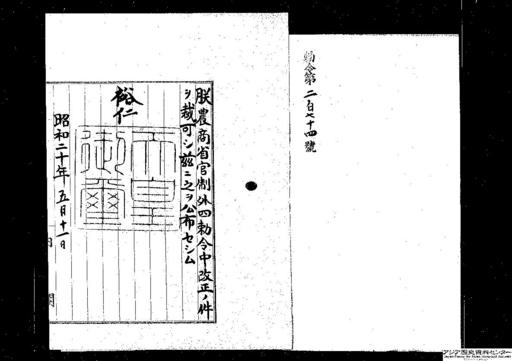 勅令第二百七十四號
朕農商省官制外四勅令中改正ノ件
ヲ裁可シ茲ニ之ヲ公布セシム
裕仁
天皇御璽
昭和二十年五月十一日
内閣
アジア歴史資料センター